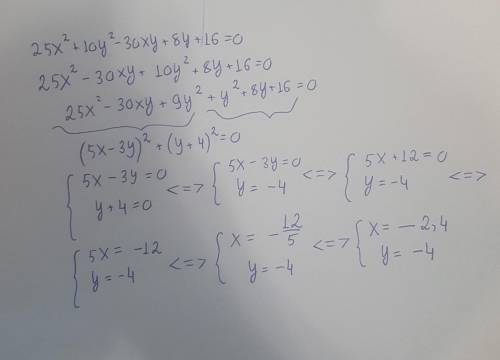 25x² + 10y² - 30xy + 8y + 16 = 0
25x² - 30xy + 10y² + 8y + 16 = 0
25x² - 30xy + 9y² + y² + 8y + 16 = 0
(5x - 3y)² + (y + 4)² = 0
{ 5x - 3y = 0 <=> { 5x - 3y = 0 <=> { 5x + 12 = 0 <=>
y + 4 = 0 y = -4 y = -4
{ 5x = -12 <=> { x = -12/5 <=> { x = -2,4
y = -4 y = -4 y = -4